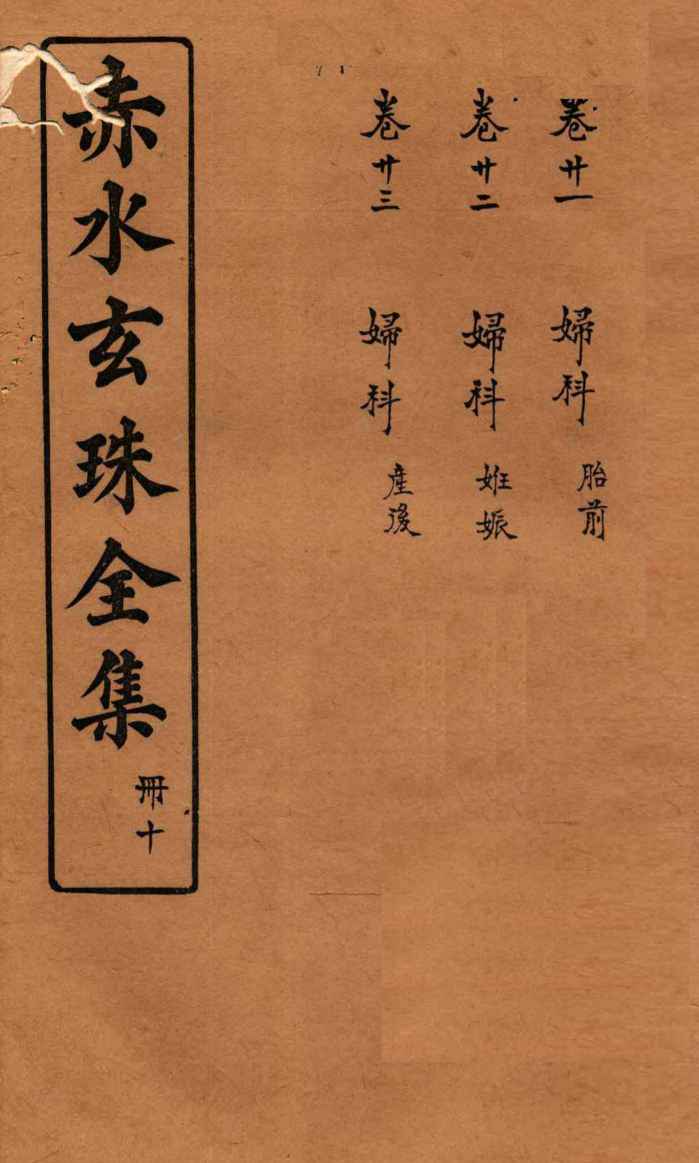 卷廿一 婦科 胎前
卷廿二 婦科 姙娠
卷廿三 婦科 產後
赤水玄珠全集
冊十